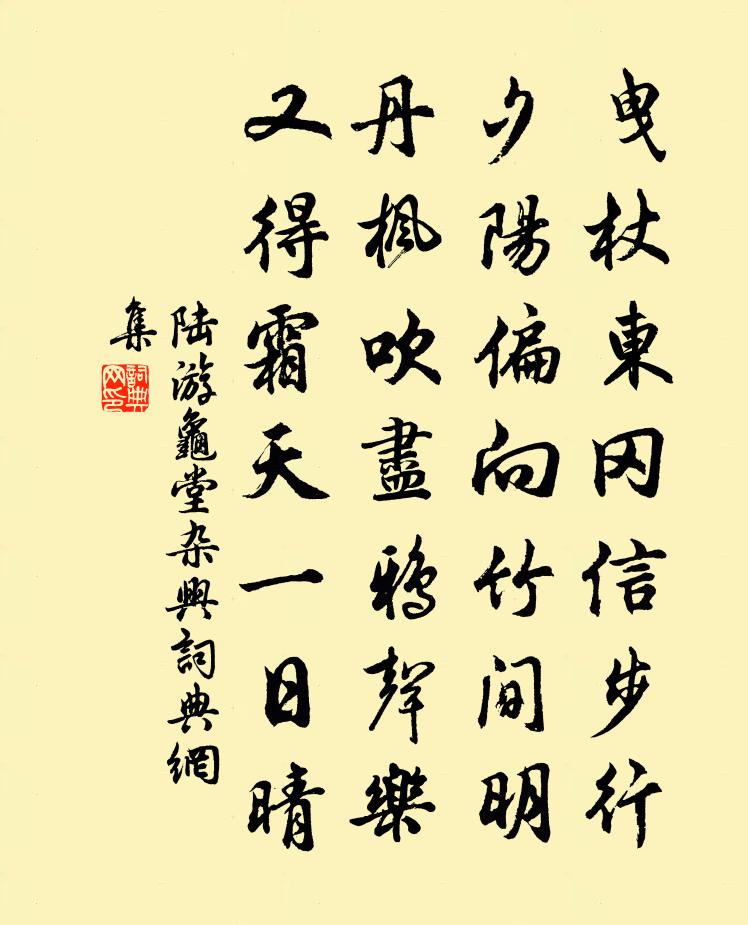 曳杖東冈信步行
夕陽偏向竹间明
丹楓吹盡鴉聲樂
又得霜天一日晴
陆游龜堂杂興詞典網
集
詞典
网印